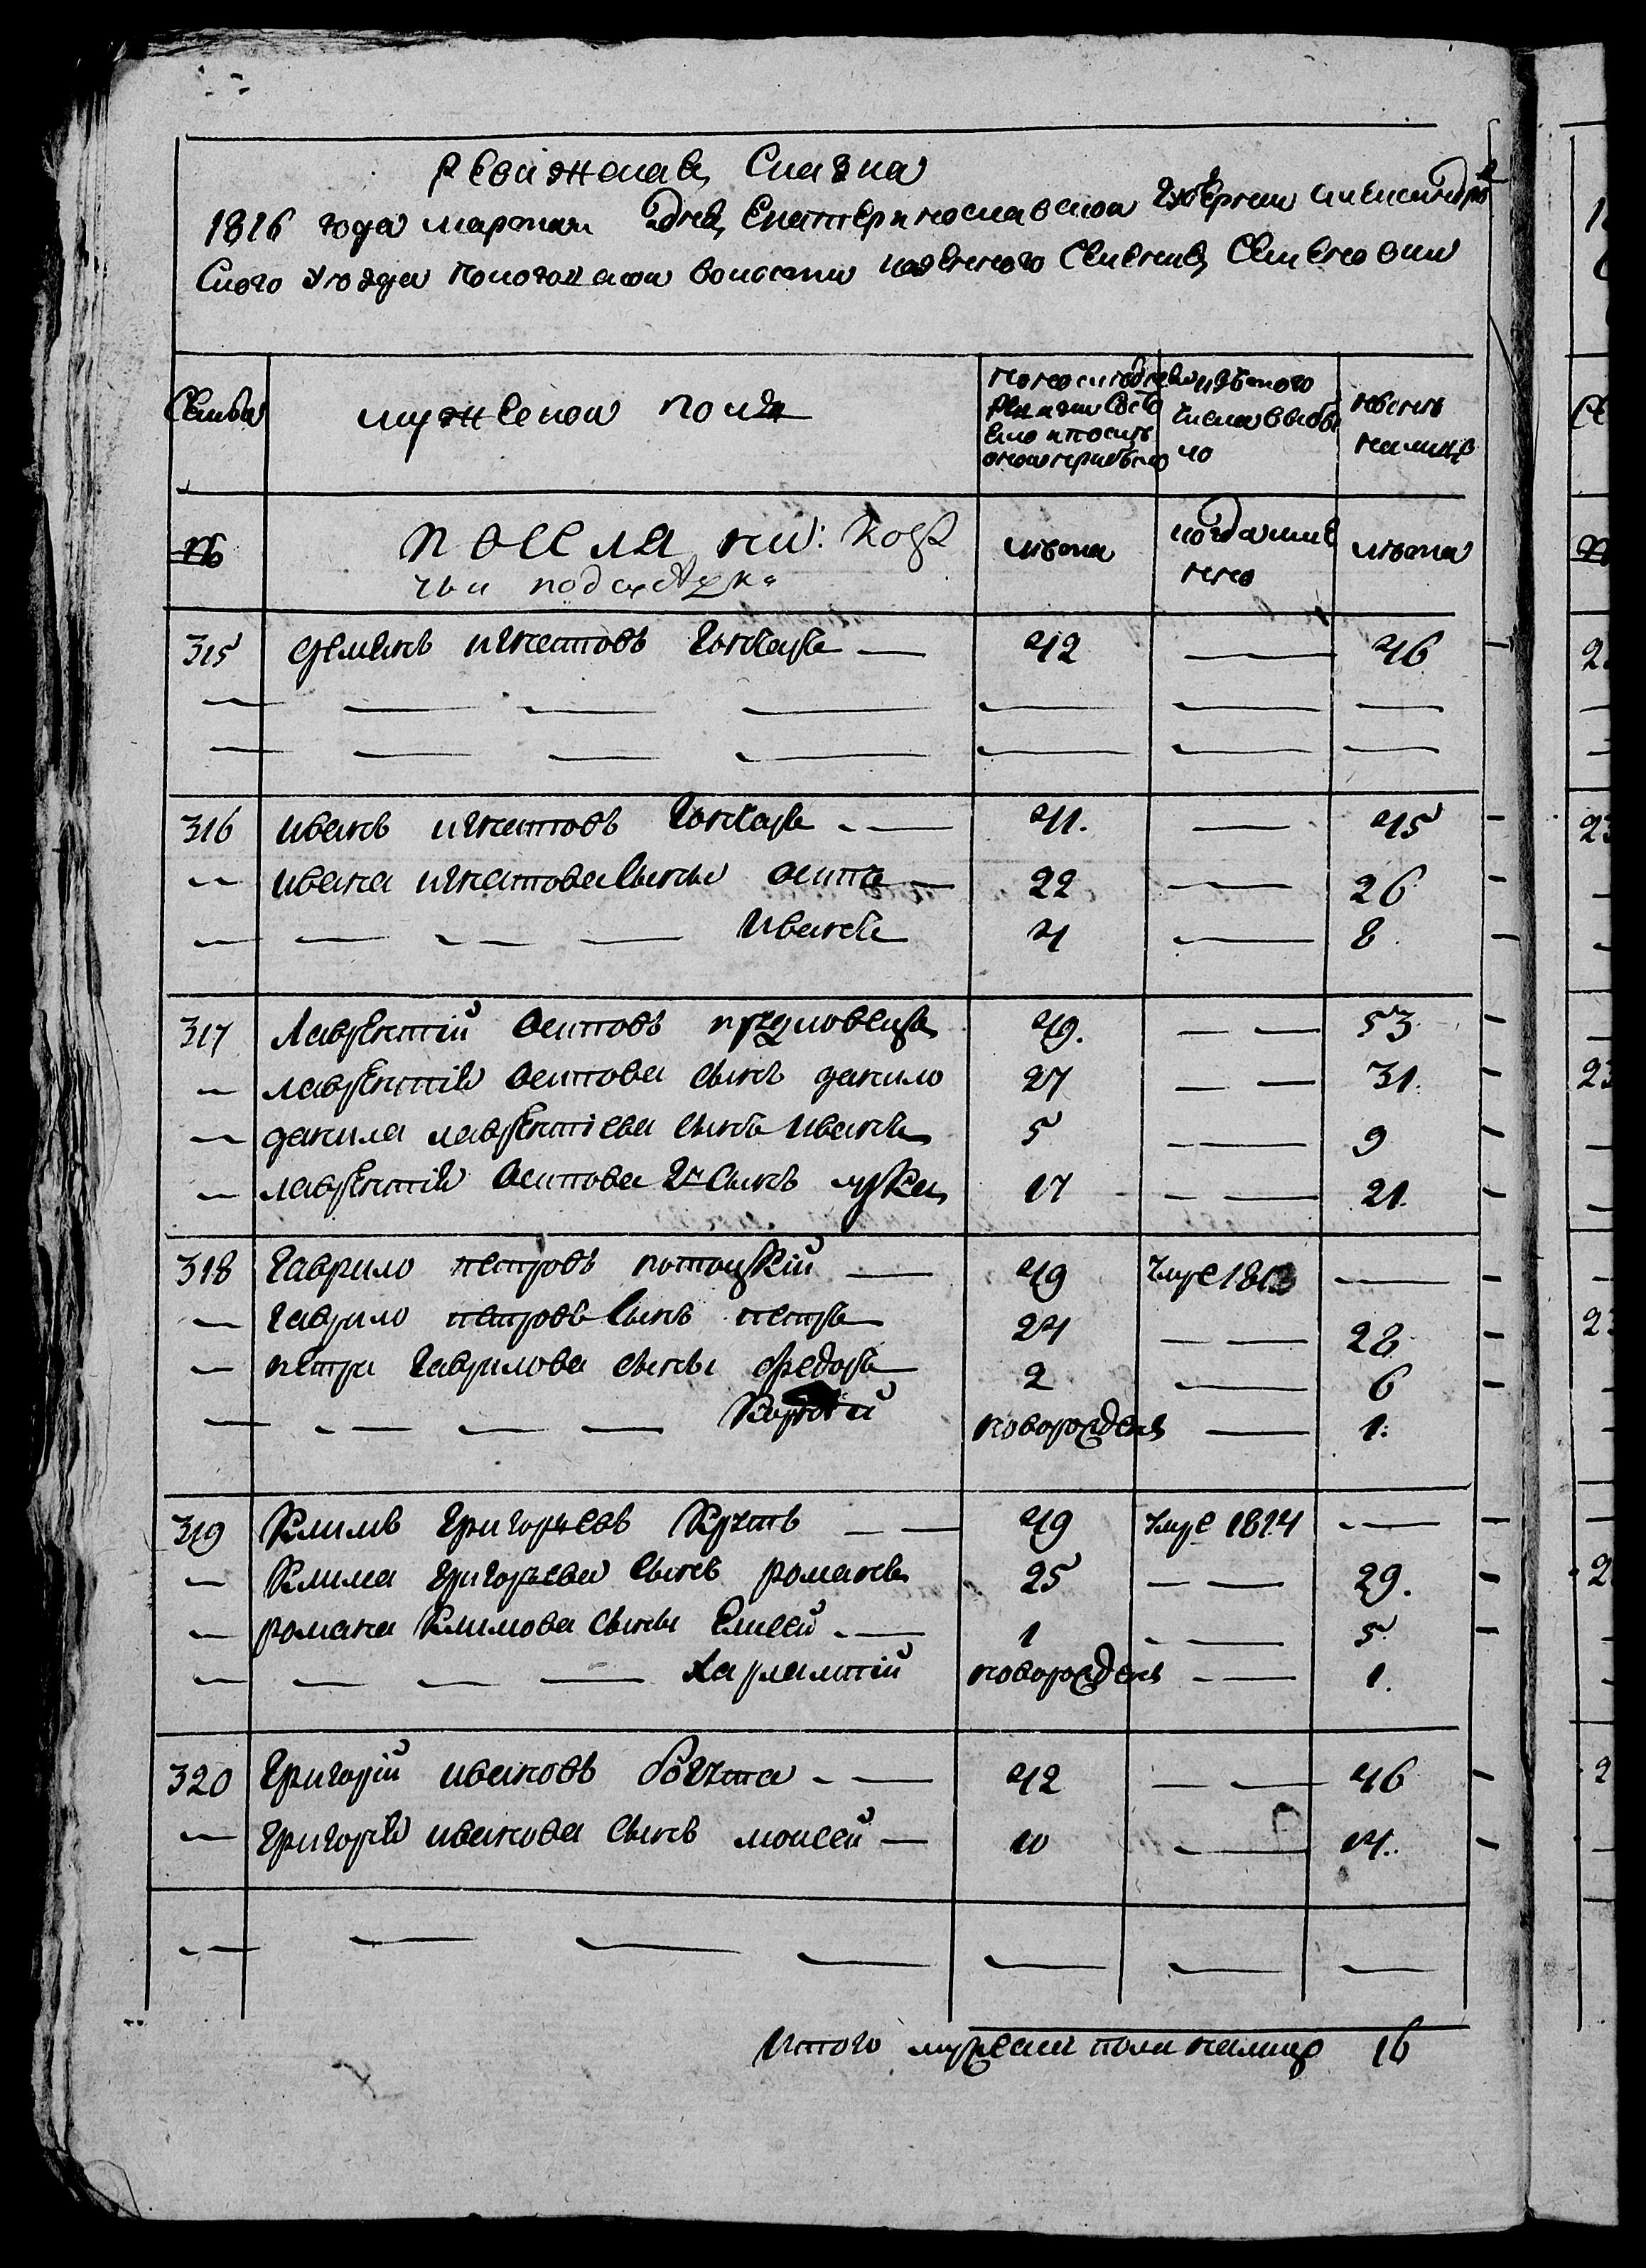 Ревижская Сказка
1816 года марта дня Екатеринославской Губернии Александров
ского уезда Пологовской волости казенного селения Семеновки
Семьи
мужеской полъ
По последней ревизии состояло и после оной прибыло
Изъ того числа выбыло
Ныне на лицо
№
поселяни: Коза
чьи подсуседки
лета
когда именно
лета
315 Демянъ Игнатовъ Гончаръ — 42 — 46
316 Иванъ Игнатовъ Гончаръ — 41. — 45
— Ивана Игнатова сыны Осипъ — 22 — 26
— — — — Иванъ 4 — 8
317 Лаврентий Осиповъ 49. — — 53
— Лаврентия Осипова сынъ Данило 27 — — 31.
— Данила Лаврентиева сынъ Иванъ 5 — — 9
— Лаврентия Осипова 2й сынъ Лука 17 — — 21.
318 Гаврило Петровъ Потоцкий — 49 Умре 1813 —
— Гаврило Петровъ сынъ Петръ 24 — — 28
— Петра Гаврилова сыны Федоръ 2 — 6
— — — — — новорожденъ — 1.
319 Климъ Григорьевъ — — 49 Умре 1814 —
— Клима Григорьева сынъ Романъ 25 — — 29.
— Романа Климова сыны Елисей — 1 — — 5
— — — — Харлампий новорожденъ — — 1.
320 Григорий Ивановъ — — 42 — — 46
— Григория Иванова сынъ Моисей — 10 — 14.
Итого мужеска пола налицо 16